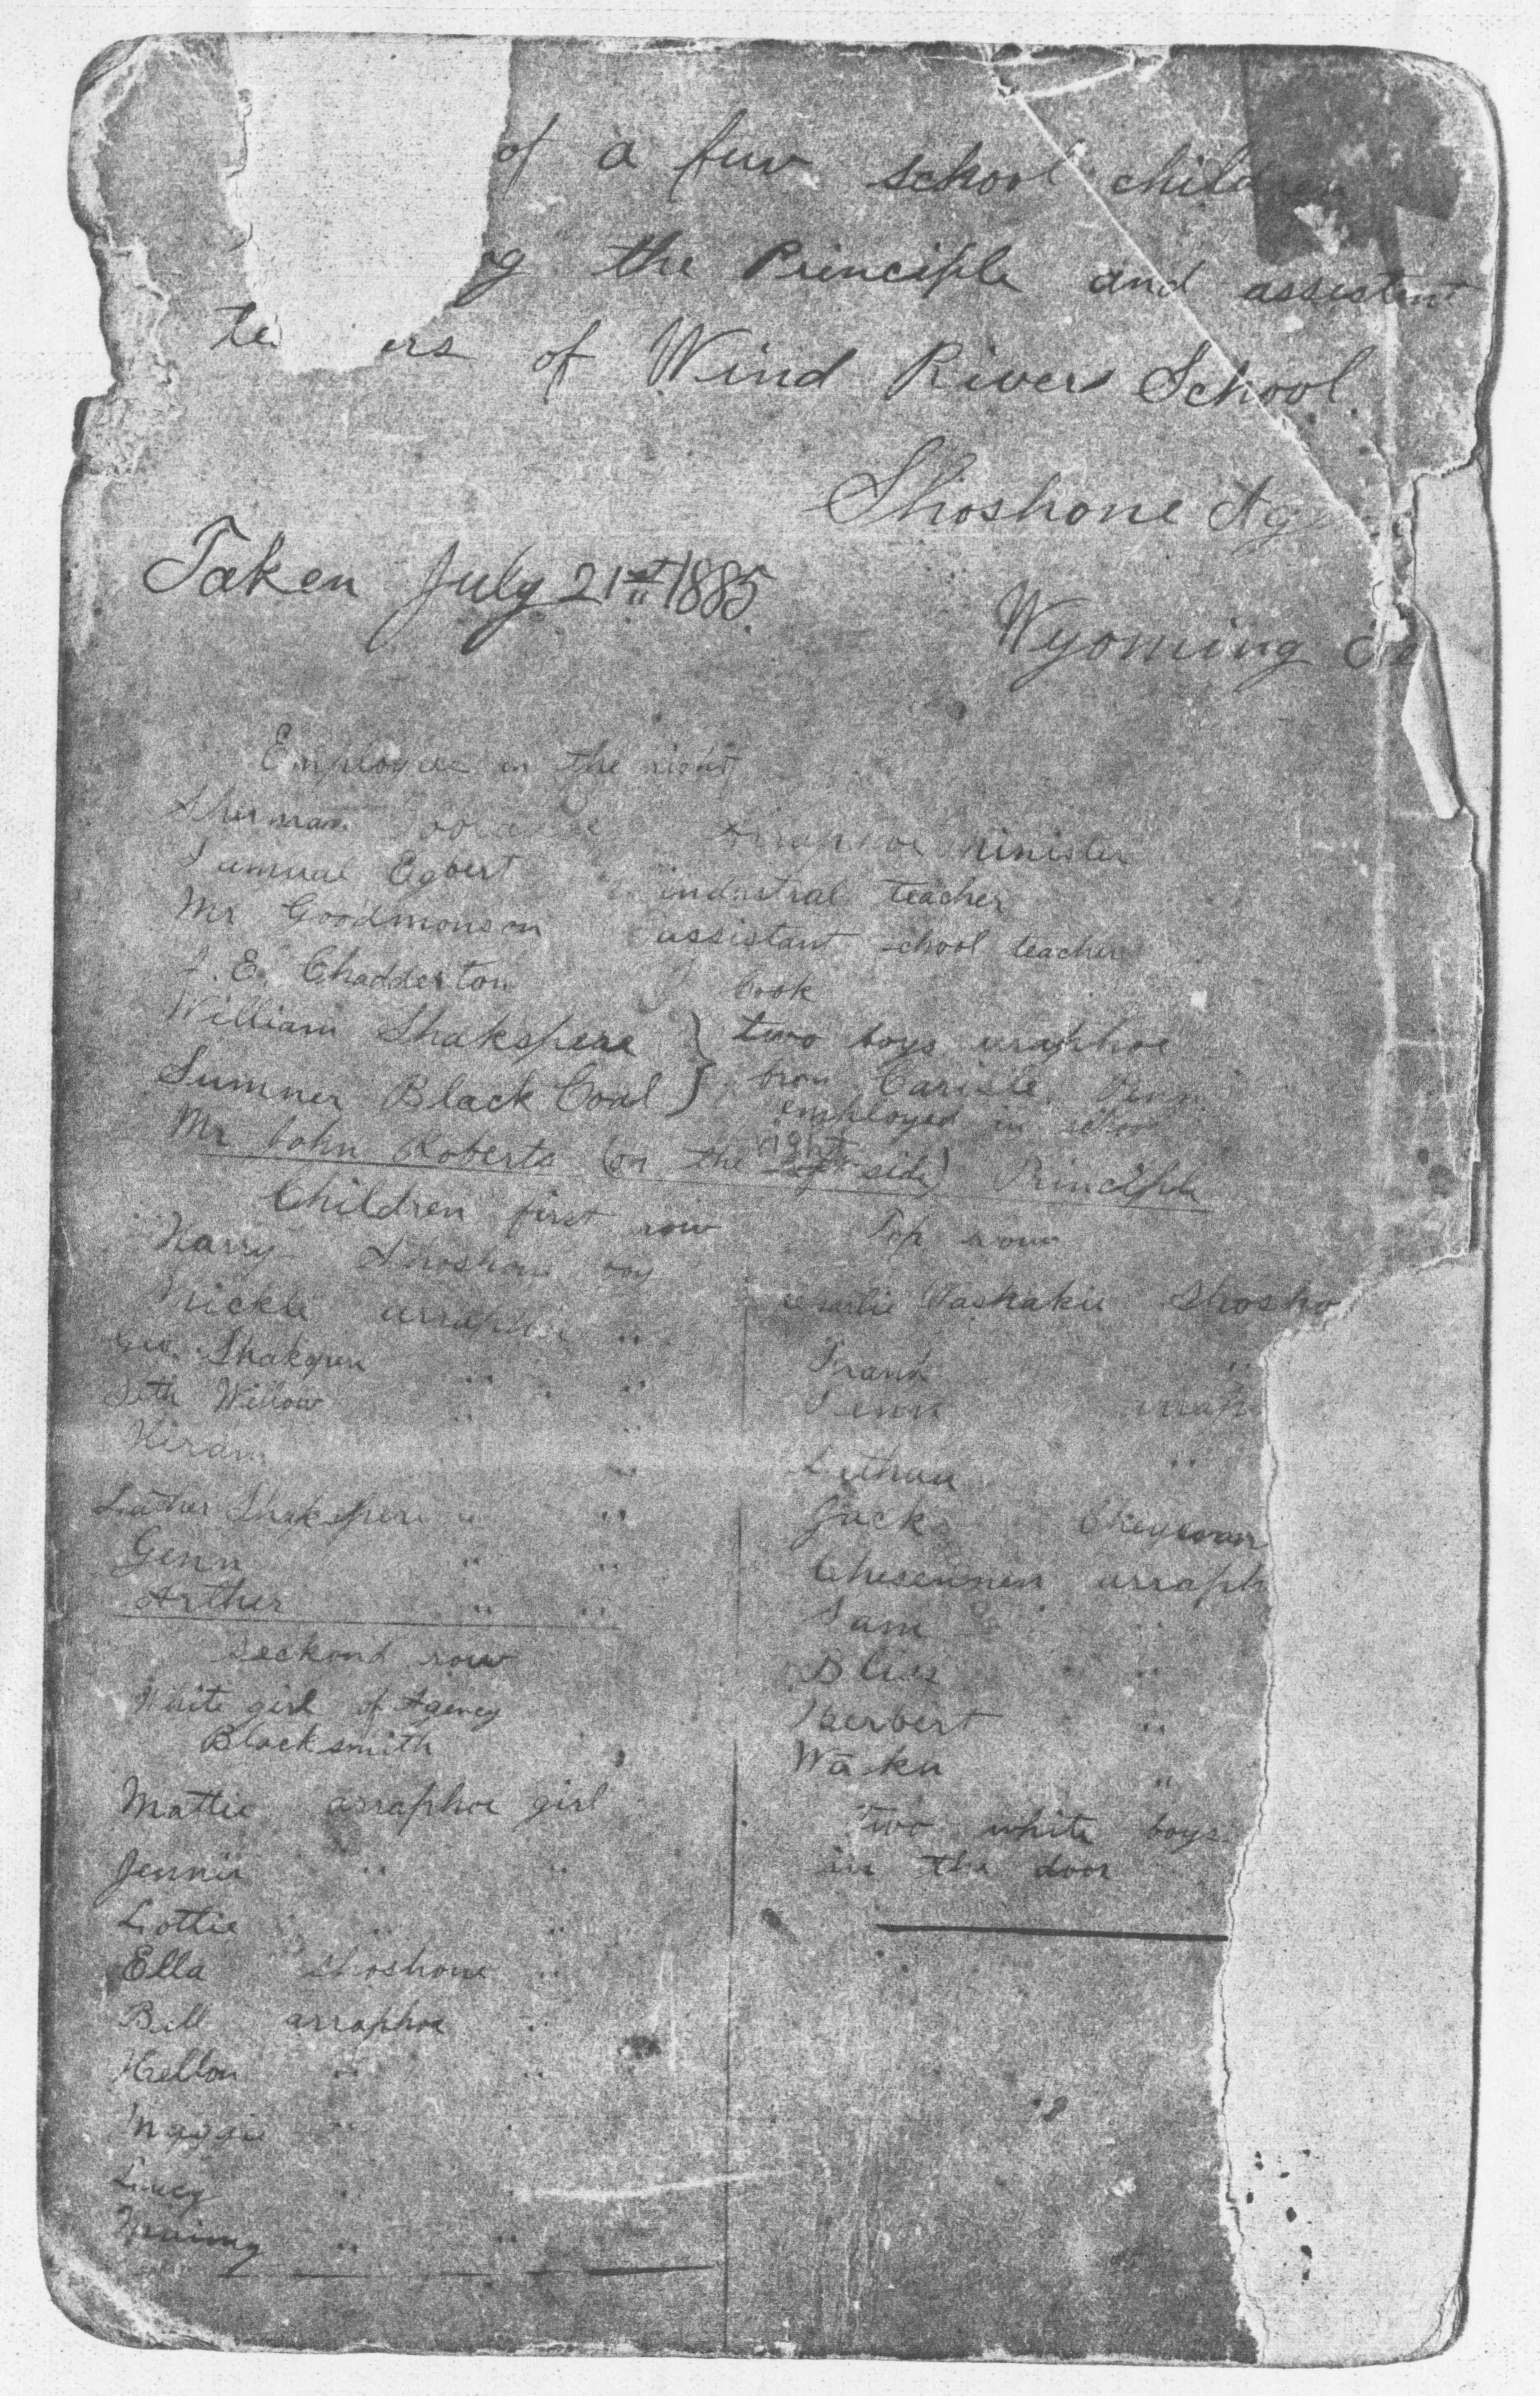 of a fuw school children
the Principle and assistent
te ers of Wind River School
Shoshone Ag
Taken July 21st 1885
Wyoming
Employees on the right
Sherman minister
Samual Egbert industral teacher
Mr Goodmonson assistant school teacher
E. Chadderton Cook
William Shakspeare } two boys arraphoe
Sumner Black Coal } from Carisle, Penn
employed in school
Mr John Roberts (on the right side) Principle
Children first row
Harry Shoshone boy
Mickle arraphoe "
Geo. " " "
Seth Willow " "
Hiram "
Luther Shakspere " "
Genn " "
Arther " "
seckond row
White girl of Agency
Blacksmith
Mattie arraphoe girl
Jennie " "
Lottie " "
Ella Shoshone "
Bell arraphoe "
" "
Maggie " "
Lucy " "
" "
Top row
Charlie Washakie Shosho
Frank "
arrap
"
Jack
arraph
Sam "
Bliss "
Herbert "
Waku "
Two white boys
in the door